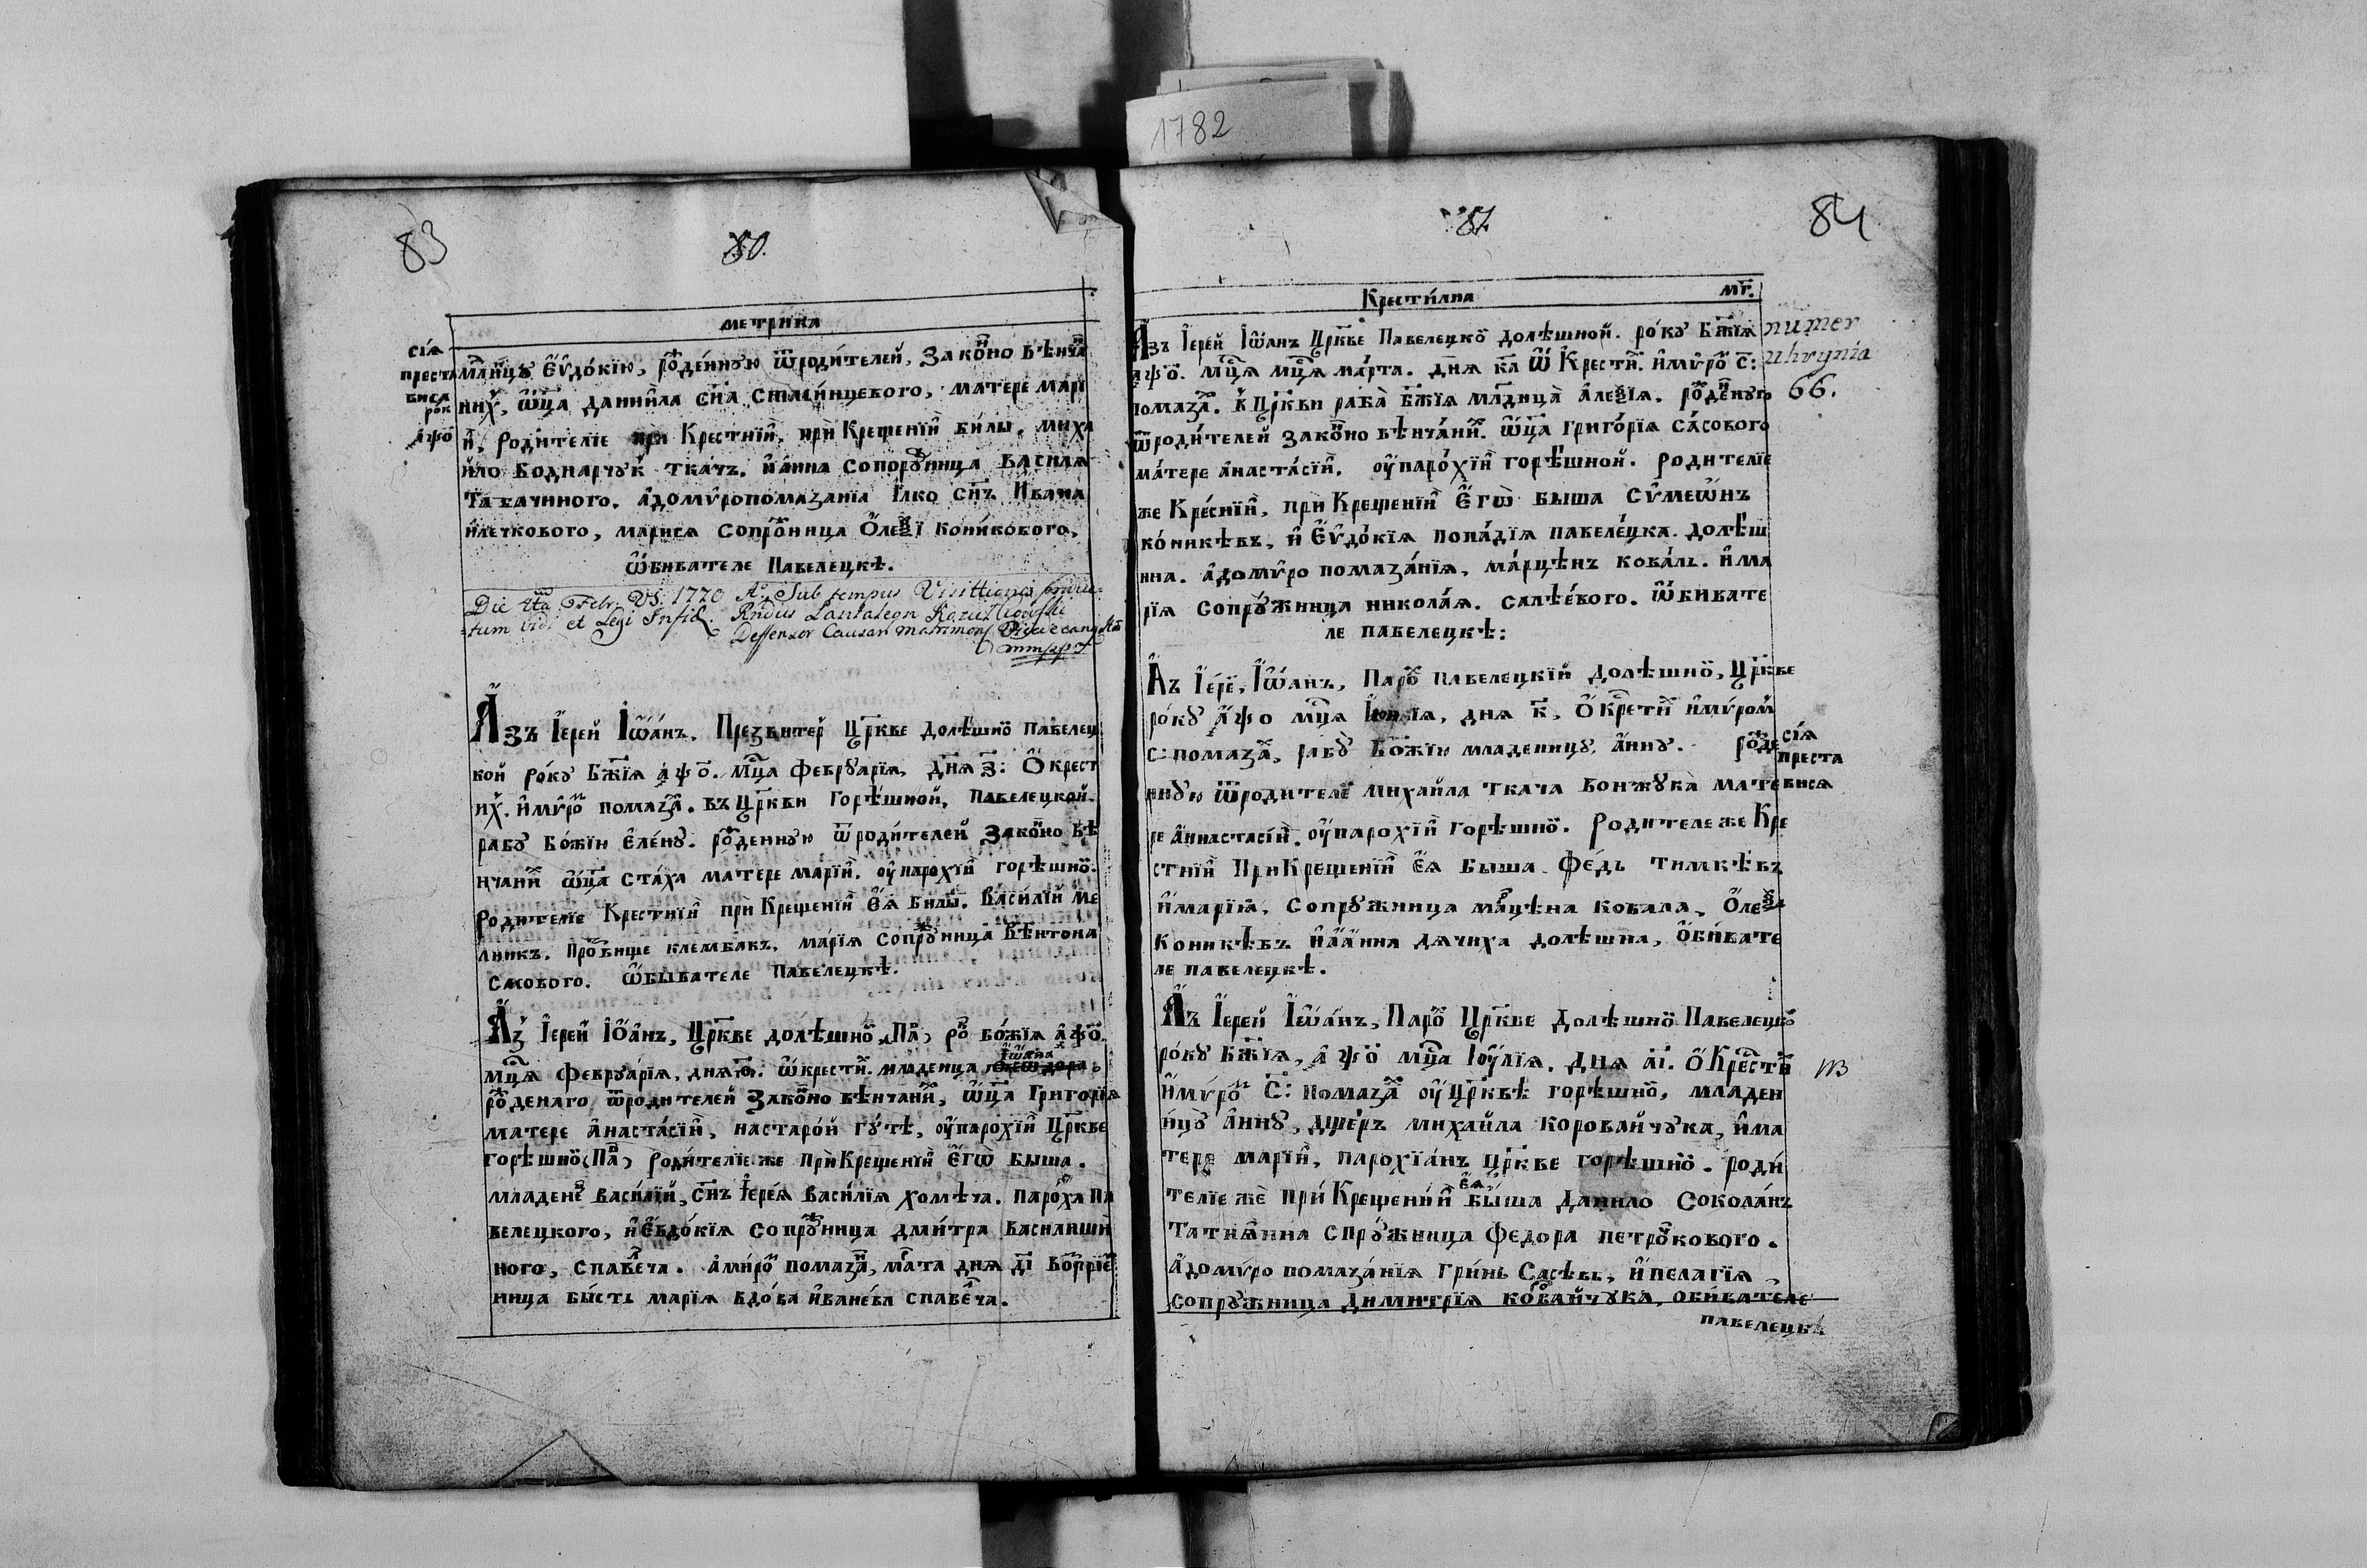 1782
83
80.
метрика
сїѧ
преста
висѧ
рок
҂аѱо
мл҃нцꙋ Еѵдокїю, рожденнꙋю ѿродителей, законо вѣнча
них, ѿца даниила сн҃а матере марі
й, родителїе при Крестнїи, при Крещенїи били, миха
йло Боднарчꙋк ткачъ. и анна сопорꙋжница василѧ
Ткачиного. адомѵропомазанїа Ілко сн҃ъ Ивана
илечкового, марисѧ сопрꙋжница Ѻлеѯї коникового,
ѿбивателе Павелецкѣ.
Die Febr. VS. 1770 A: Sub tempus Visittionis
tum vidi et Legi In fid. Rndus Pantaleon
Deffensor Causar matrimon
Азъ Іерей Іѡанъ. Презвитер Црк҃ве долѣшной павелец
кой рокꙋ Бж҃їѧ ҂аѱо. мц҃а феврꙋарїѧ, днѧ з: Ѻ крест
их. имѵро помаза. въ Црк҃ви горѣшной, павелецкой.
рабꙋ божїю еленꙋ. рожденнꙋю ѿродителей законо вѣ
нчани ѿц҃а стаха матере марїи. ѹпарохїи горѣшно.
родителїе Крестнїи при Крещенїи еѧ били. василїй ме
лникъ. прозвище клембакъ. марїѧ сопрꙋжница вѣнтона
сасового. ѿбывателе павелецкѣ.
Аз Іерей Іѡанъ, Црк҃ве долѣшно, Па, ро божїѧ ҂аѱо.
мц҃ѧ феврꙋарїѧ, днѧ ѿкрести. младенца Іѡана
рожденаго ѿродителей законо вѣнчани, ѿц҃а Григорїѧ
матере анастасїи, настарой гꙋтѣ, ѹпарохїи Црк҃ве
горѣшно (Па) родителїе же при Крещенїи его быша.
младене василїй, сн҃ъ Іереѧ василїѧ хомѣча. пароха па
велецкого, и евдокїѧ сопрꙋжница дмитра василиши
ного, спавеча. амиро помаза, мата днѧ ді
ница бысть марїѧ вдова иванева спавеча.
84
81.
Крестилна
мг.
numer
uhrynia
66.
Азъ Іерей Іѡанъ Црк҃ве Павелецко долѣшной. рокꙋ Бж҃їѧ
҂аѱо. мц҃ѧ марта. днѧ ка Ѿ Крести. имѵро с:
помаза. в Црк҃ви раба бж҃їѧ младица алеѯїѧ. рожденꙋю
ѿродителей законо вѣнчани. ѿц҃а григорїѧ сасового
матере анастасїи. ѹпарохїи горѣшной. родителїе
же Креснїи, при Крещенїи Его быша Сѵмеѡнъ
коникѣвъ, и Еѵдокїѧ попадїѧ павелецка. долѣш
нна. адомѵро помазанїѧ, марцѣнъ коваль. има
рїѧ сопрꙋжница николаѧ. салѣевого. ѿбивате
ле павелецкѣ:
Аъ Іереи, Іѡанъ, Паро павелецкїй долѣшно, Црк҃ве
рокꙋ ҂аѱо мц҃а днѧ к, Ѻкрети имѵром
с: помаза, рабꙋ Божїю младеницꙋ, аннꙋ. рожде
ннꙋю ѿродителе михайла ткача бонжꙋка мате
ре аннастасїи. ѹпарохїи горѣшно. родителе же Кре
стнїи При Крещенїи еѧ быша федь тимкѣвъ
имарїѧ, сопрꙋжница мацѣна ковалѧ, Ѻлеѯа
Коникѣвъ и анна дѧчиха долѣшна, ѻбивате
ле павелецкѣ.
сїѧ
преста
висѧ
Аъ Іерей Іѡанъ, Паро Црк҃ве долѣшно Павелецко
рокꙋ Бж҃їѧ, ҂аѱо мц҃а Іѹлїѧ. днѧ аі. Ѻ Крести
имѵро с: помаза ѹ Црк҃вѣ горѣшно, младен
ицꙋ аннꙋ, дщеръ михайла коровайчꙋка, има
тере марїи, парохїанъ Црк҃ве горѣшно. роди
телїе же при Крещенїи еѧ быша данило соколанъ
Татиѧнна спрꙋжница федора петрꙋкового.
адомѵро помазанїѧ гринь Сасѣвъ, и пелагїѧ
сопрꙋжница димитрїѧ ковайчꙋка, обивателе
павелецкѣ